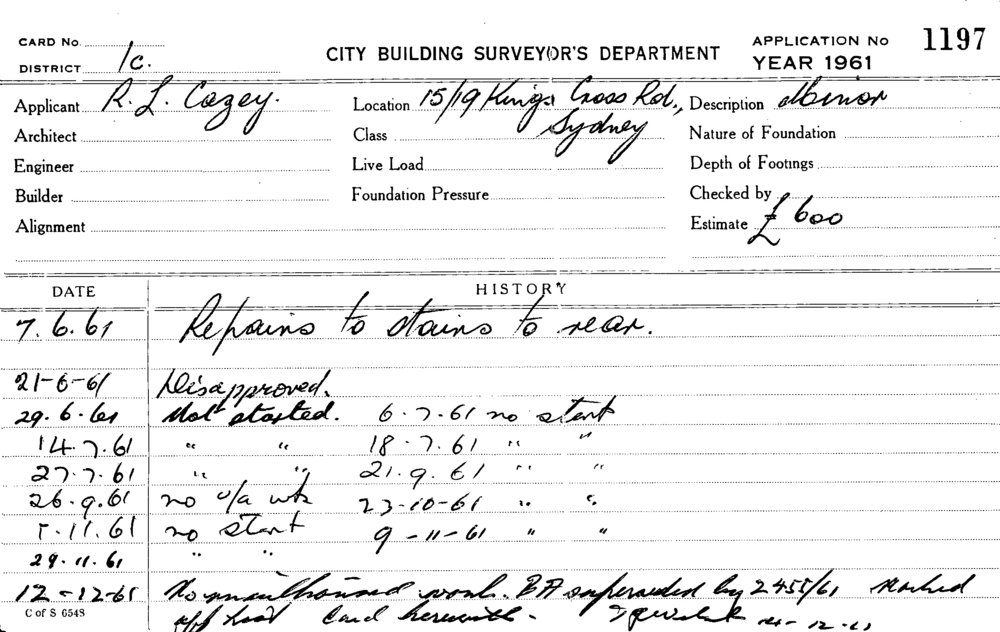 CARD No.
DISTRICT 1c.
CITY BUILDING SURVEYOR'S DEPARTMENT
APPLICATION No 1197
YEAR 1961
Applicant R. L. Cazey. Location 15/19 Kings Cross Rd., Sydney Description Minor
Architect Class Nature of Foundation
Engineer Live Load Depth of Footings
Builder Foundation Pressure Checked by
Alignment Estimate £600
DATE HISTORY
7.6.61 Repairs to stairs to rear.
21-6-61 Disapproved.
29.6.61 Not started. 6.7.61 no start
14.7.61 " " 18.7.61 " "
27.7.61 " " 21.9.61 " "
26.9.61 no u/a wk 23-10-61 " "
1.11.61 no start 9-11-61 " "
29.11.61 " "
12-12-61 No unauthorised work. BA superseded by 2455/61 marked
C of S 6548
off list Card herewith. 14-12-61